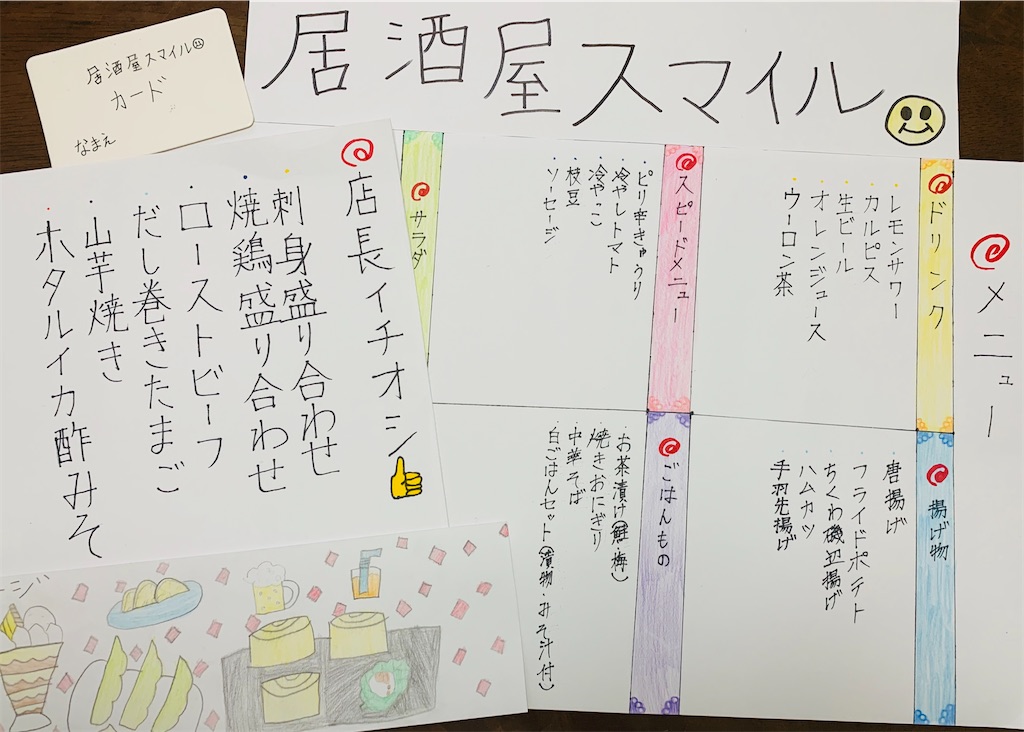 居酒屋スマイル
居酒屋スマイル
カード
なまえ
メニュー
ドリンク
・レモンサワー
・カルピス
・生ビール
・オレンジジュース
・ウーロン茶
スピードメニュー
・ピリ辛きゅうり
・冷やしトマト
・冷やっこ
・枝豆
・ソーセージ
サラダ
揚げ物
・唐揚げ
・フライドポテト
・ちくわ磯辺揚げ
・ハムカツ
・手羽先揚げ
ごはんもの
・お茶漬け(鮭・梅)
・焼きおにぎり
・中華そば
・白ごはんセット(漬物・みそ汁付)
店長イチオシ
・刺身盛り合わせ
・焼鶏盛り合わせ
・ローストビーフ
・だし巻きたまご
・山芋焼き
・ホタルイカ酢みそ